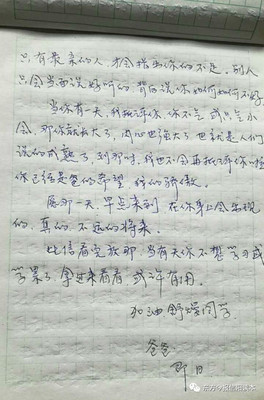 只有最亲的人，才会指出你的不足，别人
只会当面说好听的，背后说你如何如何不好。
当你有一天，我批评你，你不气，或只气小
会，那你就长大了，内心也强大了，也就是人们
说的成熟了，到那时，我也不会再批评你，
你已经是爸的希望，我的骄傲。
愿那一天，早点来到，在你身上会出现
的，真的，不远的将来。
此信看完放那，当有天你不想学习或
学累了，拿过来看看，或许有用。
加油舒 同学
爸爸
即日